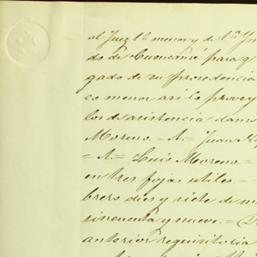 al Juez 1º menor y de 1ª Ins
do de Cuencamé para q
gado de su procedencia
co menor así lo provey
los de asistencia damos
Moreno = A = Juan
= A = Luis Moreno. =
en tres fojas utiles. =
brero diez y siete de m
cincuenta y nueve. =
anterior requisitoria